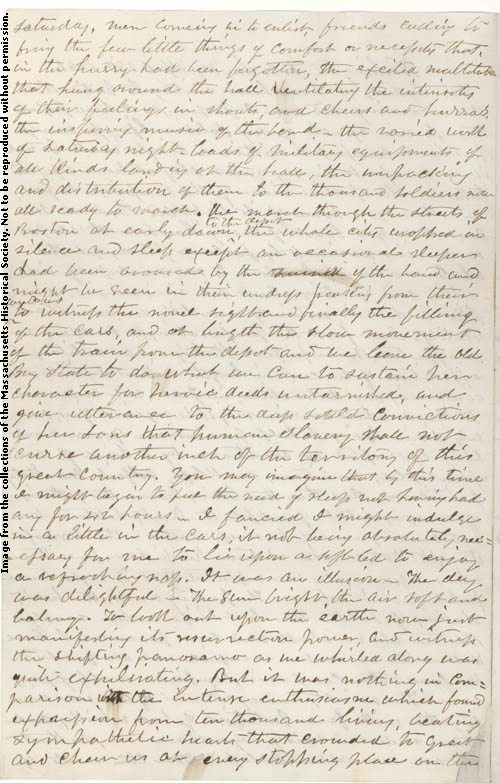 Image from the collections of the Massachusetts Historical Society. Not to be reproduced without permission.
Saturday, men coming in to enlist friends calling to
bring the few little things of comfort or necessity that
in the hurry had been forgotten, the excited multitude
that hung round the hall ventilating the intensity
of their feelings in shouts and cheers and hurrahs.
the inspiring music of the band – the varied work
of Saturday night – loads of military equipments of
all kinds landing at the hall, the unpacking
and distribution of them to the thousand soldiers now
all ready to march. The march through the streets of
to the depot
Boston at early dawn, the whole city wrapped in
silence and sleep except an occasional sleeper
had been aroused by the of the band and
might be seen in their undress peering from their
windows
to witness the novel sight and finally the filling
of the cars, and at length the slow movement
of the train from the depot and we leave the old
Bay State to do what we can to sustain her
character for heroic deeds untarnished, and
give utterance to the deep convictions
of her sons that human slavery shall not
curse another inch of the territory of this
great country. You may imagine that by this time
I might begin to feel the need of sleep not having had
any for 42 hours – I fancied I might indulge
in a little in the cars, it not being absolutely nec=
essary for me to lie upon a bed to enjoy
a refreshing nap. It was an illusion – The day
was delightful – The sun bright the air soft and
balmy. To look out upon the earth now just
manifesting its resurrection power, and witness
the shifting panorama as we whirled along was
quite exhilarating. But it was nothing in com=
parison with the intense enthusiasm which found
expression from ten thousand living, beating
sympathetic hearts that crowded to greet
and cheer us at every stopping place on the